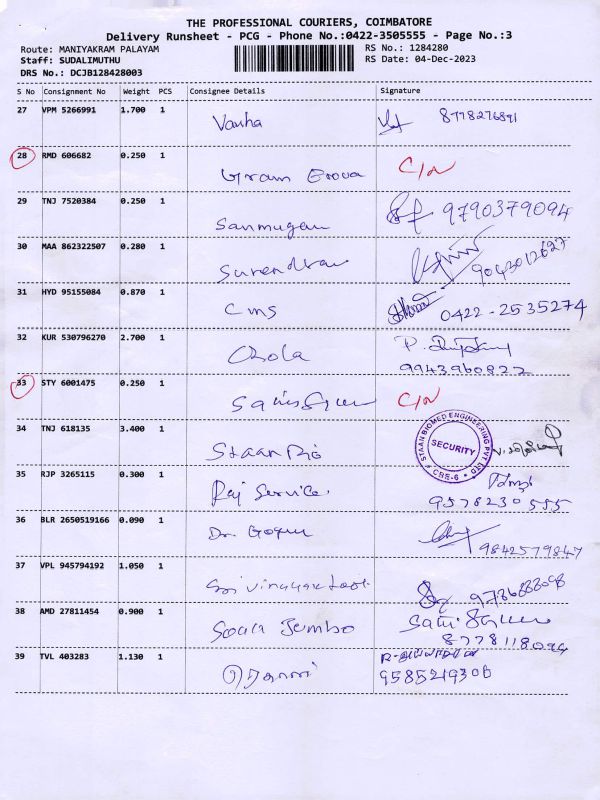 THE PROFESSIONAL COURIERS, COIMBATORE
Delivery Runsheet - PCG - Phone No.:0422-3505555 - Page No.:3
Route: MANIYAKRAM PALAYAM RS No.: 1284280
Staff: SUDALIMUTHU RS Date: 04-Dec-2023
DRS No.: DCJB128428003
S No Consignment No Weight PCS Consignee Details Signature
27 VPM 5266991 1.700 1 Vanha 8778276891
28 RMD 606682 0.250 1 C/N
29 TNJ 7520384 0.250 1 Sanmugam 9790379094
30 MAA 862322507 0.280 1 Surendran 9043012627
31 HYD 95155084 0.870 1 CMS 0422-2535274
32 KUR 530796270 2.700 1 Chola
9943960822
33 STY 6001475 0.250 1 C/N
34 TNJ 618135 3.400 1 Staan Bio
STAAN BIOMED ENGINEERING PVT LTD
SECURITY
CBE-6
35 RJP 3265115 0.300 1 Raj Service
9578230555
36 BLR 2650519166 0.090 1 Dr. Gokul
9842579847
37 VPL 945794192 1.050 1 Sri Vinayak
38 AMD 27811454 0.900 1 Jumbo
39 TVL 403283 1.130 1
9585219306